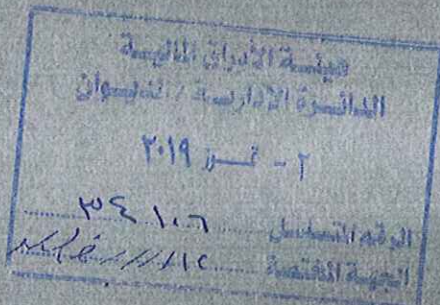 هيئة الأوراق المالية
الدائرة الإدارية / الديوان
٢ - تموز ٢٠١٩
الرقم المتسلسل ٣٤١٠٦
الجهة المختصة